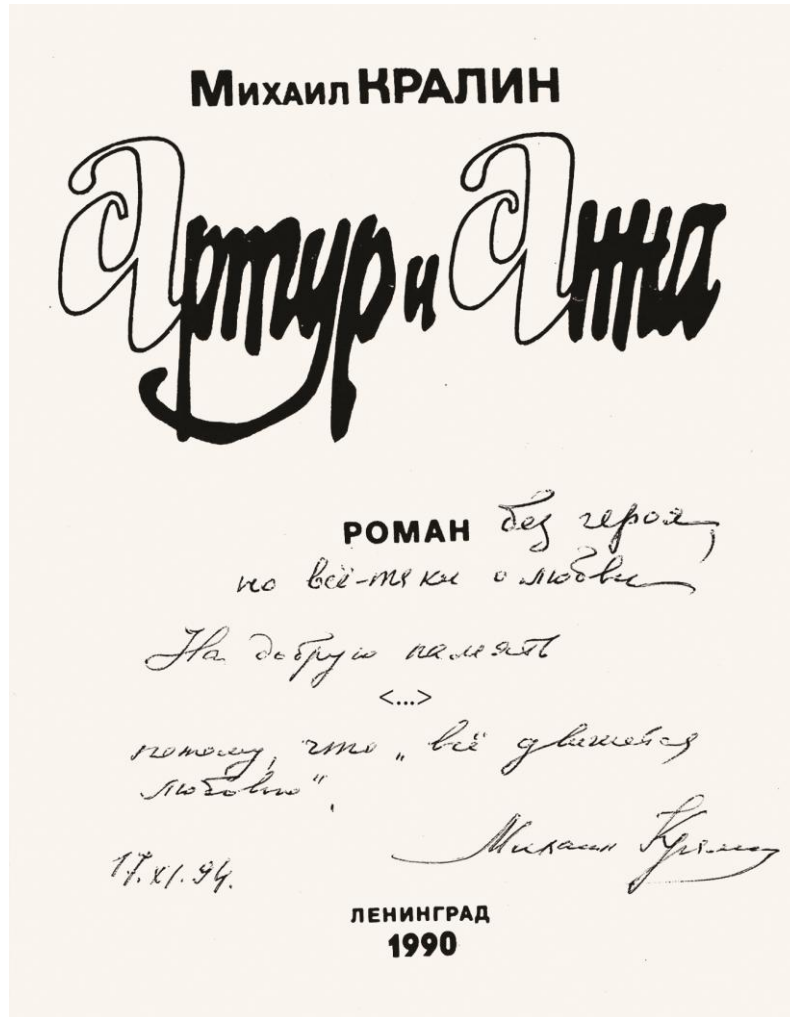 Михаил КРАЛИН
Артур и Анна
РОМАН без героя,
но всё-таки о любви
На добрую память
<...>
потому, что „всё движется
любовью".
Михаил Кралин
17.XI.94.
ЛЕНИНГРАД
1990